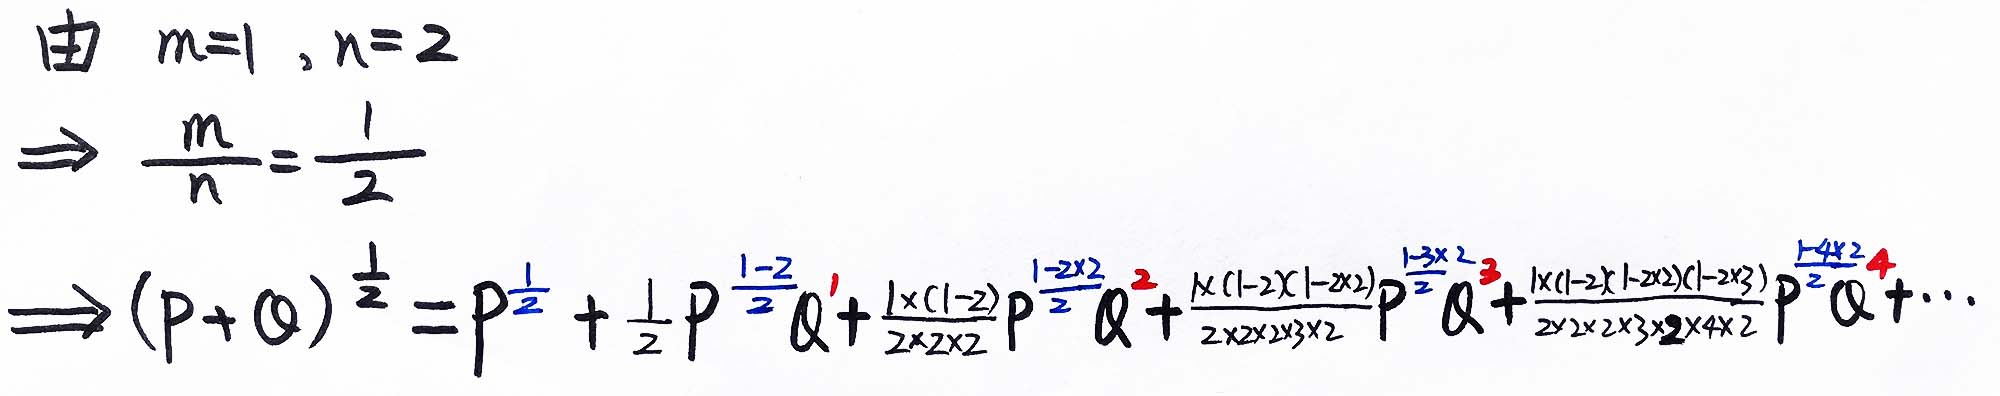 由 m=1 , n=2
⇒ m/n = 1/2
⇒ (P+Q)^(1/2) = P^(1/2) + 1/2 P^((1-2)/2) Q^1 + (1×(1-2))/(2×2×2) P^((1-2×2)/2) Q^2 + (1×(1-2)(1-2×2))/(2×2×2×3×2) P^((1-3×2)/2) Q^3 + (1×(1-2)(1-2×2)(1-2×3))/(2×2×2×3×2×4×2) P^((1-4×2)/2) Q^4 + ⋯